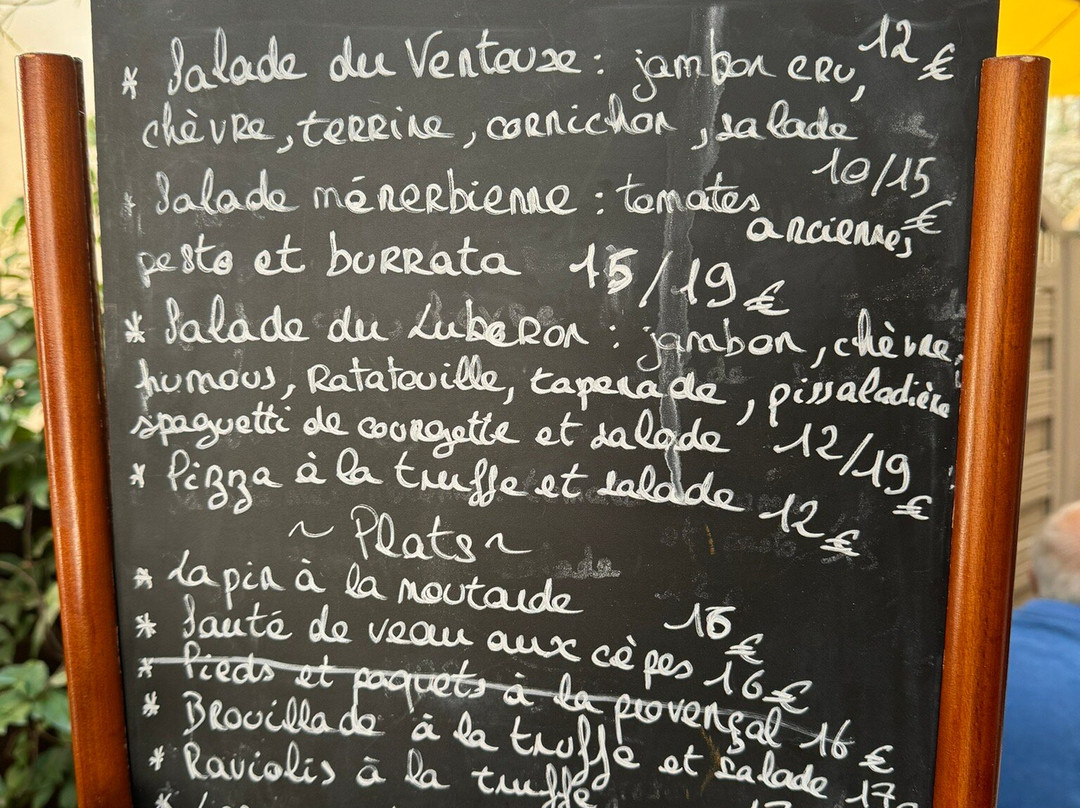 * Salade du Ventoux : jambon cru, 12 €
chèvre, terrine, cornichon, salade
10/15 €
* Salade ménerbienne : tomates anciennes,
pesto et burrata 15/19 €
* Salade du Luberon : jambon, chèvre,
humous, Ratatouille, tapenade, pissaladière
spaguetti de courgette et salade 12/19 €
* Pizza à la truffe et salade 12 €
~ Plats ~
* Lapin à la moutarde 16 €
* Sauté de veau aux cèpes 16 €
* Pieds et paquets à la provençal 16 €
* Brouillade à la truffe et salade 17
* Raviolis à la truffe